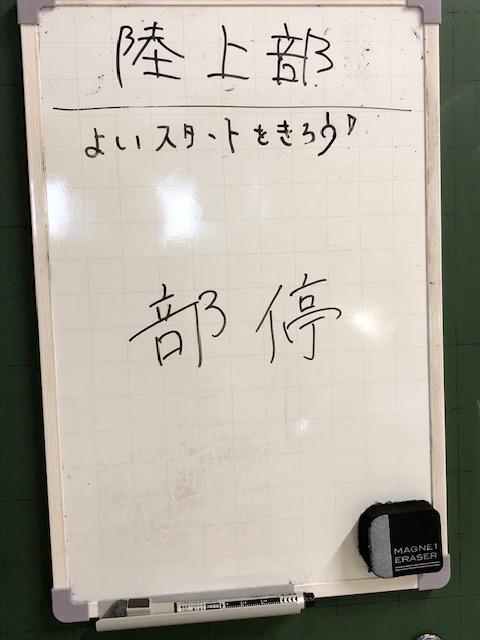 陸上部
よいスタートをきろう♪
部停
MAGNET
ERASER